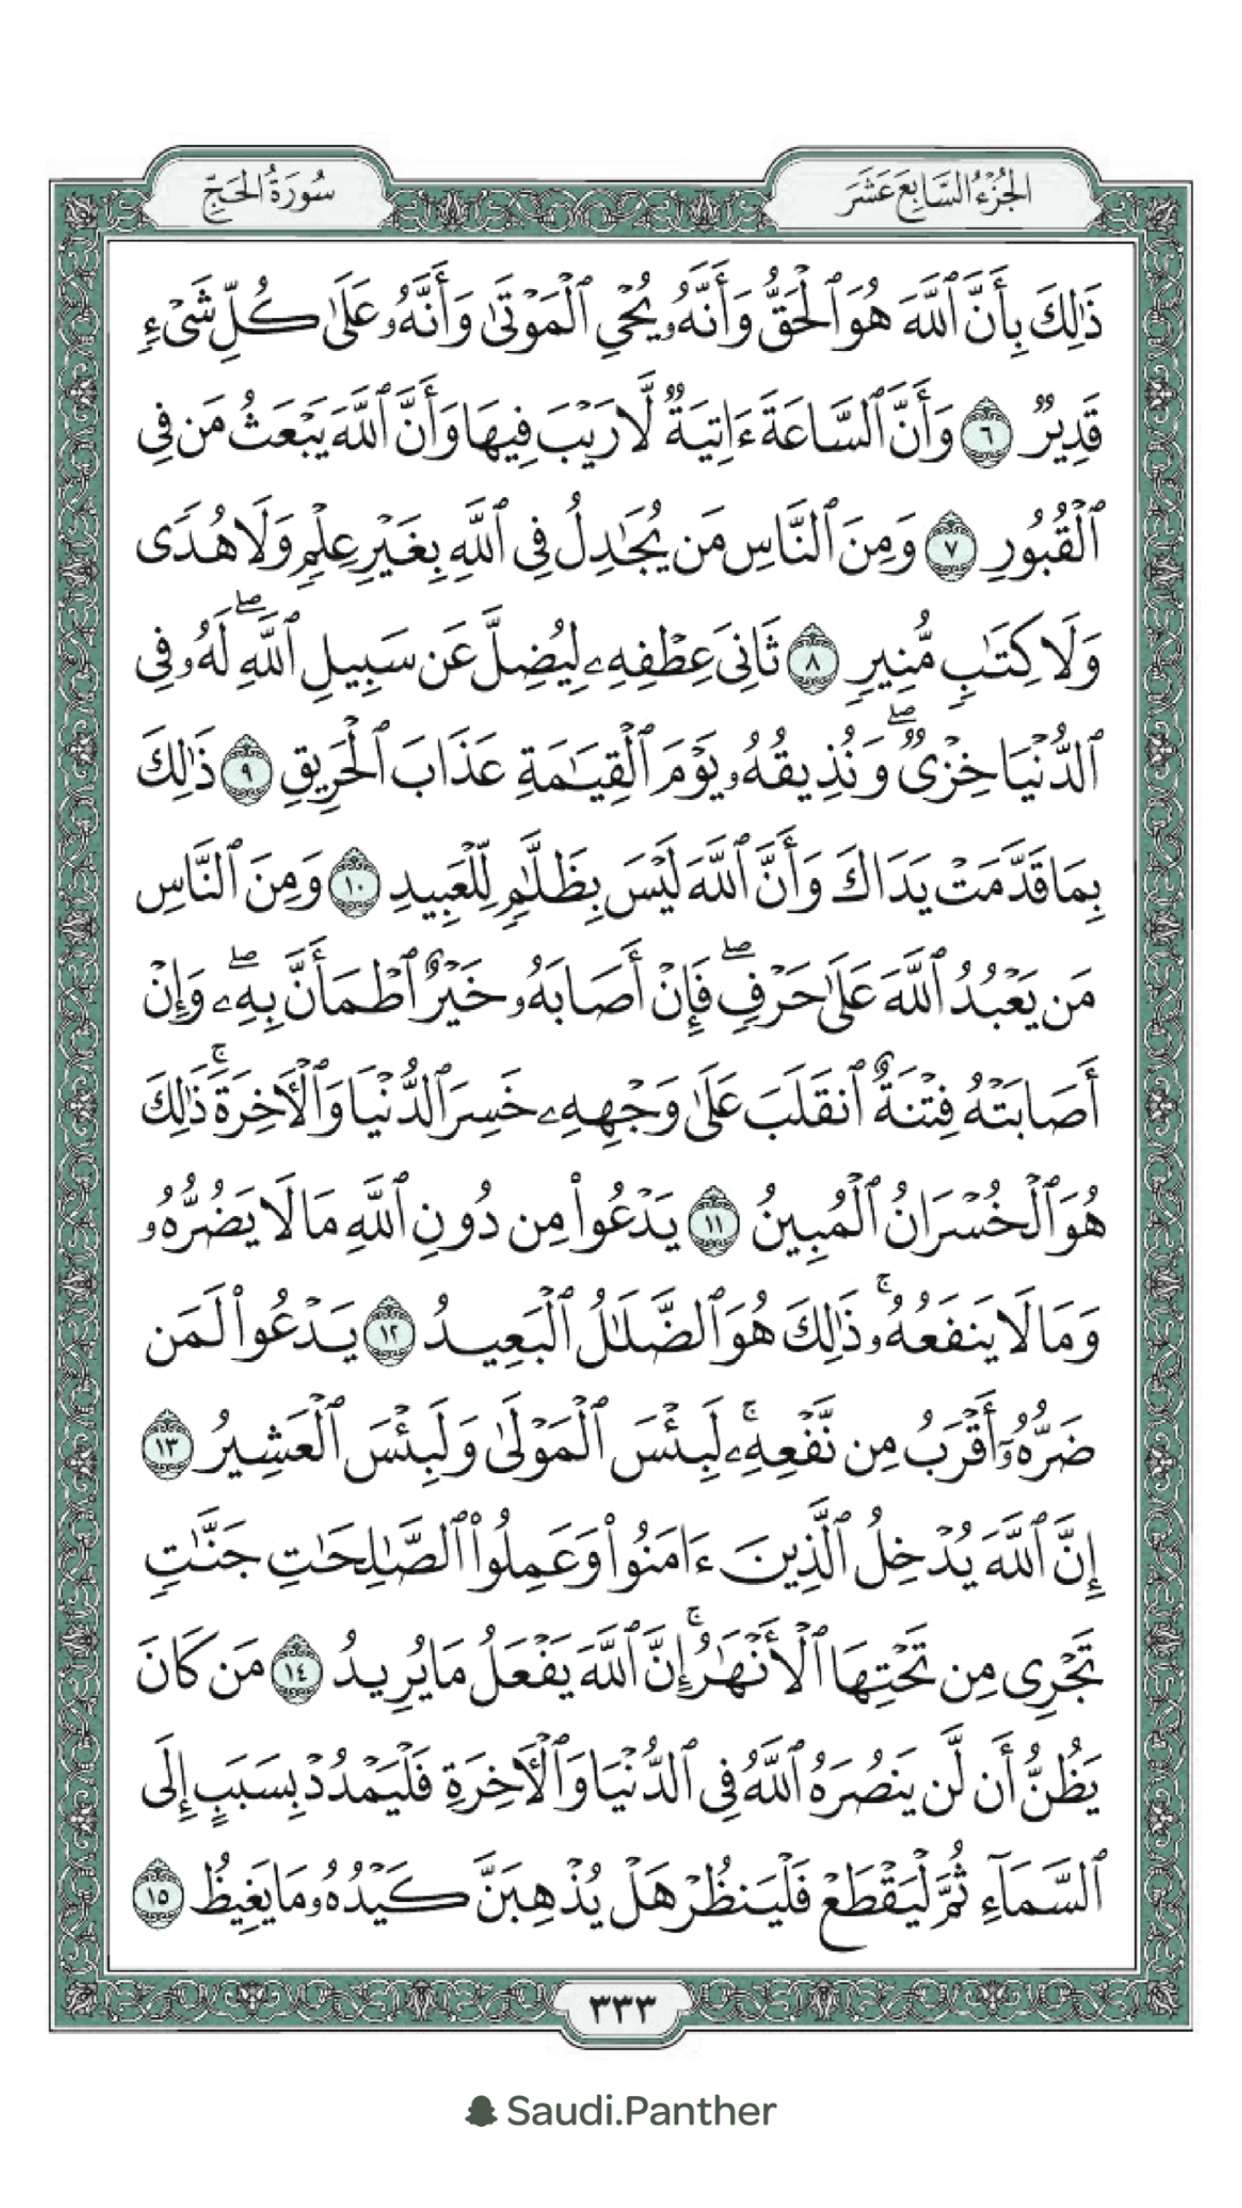 الجُزْءُ السَّابِعَ عَشَرَ
سُورَةُ الحَجِّ
ذَٰلِكَ بِأَنَّ ٱللَّهَ هُوَ ٱلۡحَقُّ وَأَنَّهُۥ يُحۡيِ ٱلۡمَوۡتَىٰ وَأَنَّهُۥ عَلَىٰ كُلِّ شَيۡءٖ
قَدِيرٞ ٦ وَأَنَّ ٱلسَّاعَةَ ءَاتِيَةٞ لَّا رَيۡبَ فِيهَا وَأَنَّ ٱللَّهَ يَبۡعَثُ مَن فِي
ٱلۡقُبُورِ ٧ وَمِنَ ٱلنَّاسِ مَن يُجَٰدِلُ فِي ٱللَّهِ بِغَيۡرِ عِلۡمٖ وَلَا هُدٗى
وَلَا كِتَٰبٖ مُّنِيرٖ ٨ ثَانِيَ عِطۡفِهِۦ لِيُضِلَّ عَن سَبِيلِ ٱللَّهِۖ لَهُۥ فِي
ٱلدُّنۡيَا خِزۡيٞۖ وَنُذِيقُهُۥ يَوۡمَ ٱلۡقِيَٰمَةِ عَذَابَ ٱلۡحَرِيقِ ٩ ذَٰلِكَ
بِمَا قَدَّمَتۡ يَدَاكَ وَأَنَّ ٱللَّهَ لَيۡسَ بِظَلَّٰمٖ لِّلۡعَبِيدِ ١٠ وَمِنَ ٱلنَّاسِ
مَن يَعۡبُدُ ٱللَّهَ عَلَىٰ حَرۡفٖۖ فَإِنۡ أَصَابَهُۥ خَيۡرٌ ٱطۡمَأَنَّ بِهِۦۖ وَإِنۡ
أَصَابَتۡهُ فِتۡنَةٌ ٱنقَلَبَ عَلَىٰ وَجۡهِهِۦ خَسِرَ ٱلدُّنۡيَا وَٱلۡأٓخِرَةَۚ ذَٰلِكَ
هُوَ ٱلۡخُسۡرَانُ ٱلۡمُبِينُ ١١ يَدۡعُواْ مِن دُونِ ٱللَّهِ مَا لَا يَضُرُّهُۥ
وَمَا لَا يَنفَعُهُۥۚ ذَٰلِكَ هُوَ ٱلضَّلَٰلُ ٱلۡبَعِيدُ ١٢ يَدۡعُواْ لَمَن
ضَرُّهُۥٓ أَقۡرَبُ مِن نَّفۡعِهِۦۚ لَبِئۡسَ ٱلۡمَوۡلَىٰ وَلَبِئۡسَ ٱلۡعَشِيرُ ١٣
إِنَّ ٱللَّهَ يُدۡخِلُ ٱلَّذِينَ ءَامَنُواْ وَعَمِلُواْ ٱلصَّٰلِحَٰتِ جَنَّٰتٖ
تَجۡرِي مِن تَحۡتِهَا ٱلۡأَنۡهَٰرُۚ إِنَّ ٱللَّهَ يَفۡعَلُ مَا يُرِيدُ ١٤ مَن كَانَ
يَظُنُّ أَن لَّن يَنصُرَهُ ٱللَّهُ فِي ٱلدُّنۡيَا وَٱلۡأٓخِرَةِ فَلۡيَمۡدُدۡ بِسَبَبٍ إِلَى
ٱلسَّمَآءِ ثُمَّ لۡيَقۡطَعۡ فَلۡيَنظُرۡ هَلۡ يُذۡهِبَنَّ كَيۡدُهُۥ مَا يَغِيظُ ١٥
٣٣٣
Saudi.Panther